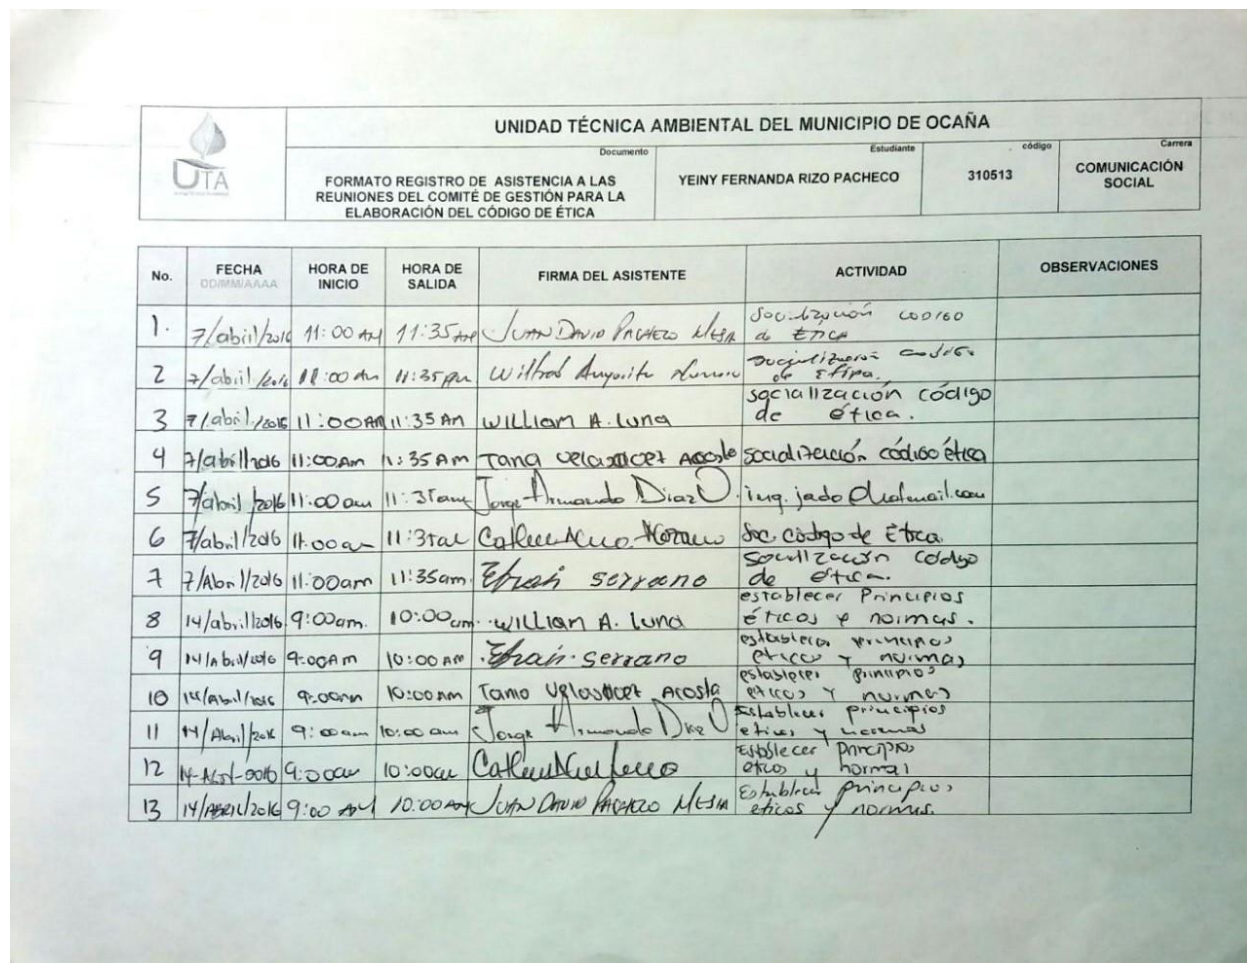 UTA
UNIDAD TÉCNICA AMBIENTAL DEL MUNICIPIO DE OCAÑA
Documento
FORMATO REGISTRO DE ASISTENCIA A LAS
REUNIONES DEL COMITÉ DE GESTIÓN PARA LA
ELABORACIÓN DEL CÓDIGO DE ÉTICA
Estudiante
YEINY FERNANDA RIZO PACHECO
código
310513
Carrera
COMUNICACIÓN
SOCIAL
No. FECHA HORA DE HORA DE FIRMA DEL ASISTENTE ACTIVIDAD OBSERVACIONES
DD/MM/AAAA INICIO SALIDA
1. 7/abril/2016 11:00 AM 11:35 AM JUAN DAVID PACHECO MESIA Socialización codigo
de ETICA
2 7/abril/2016 11:00 Am 11:35 Am
de
3 7/abril/2016 11:00 AM 11:35 Am WILLIAM A. luna socialización código
de ética.
4 7/abril/2016 11:00 Am 11:35 Am Tania velasquez Acosta socialización código ética
5 7/abril/2016 11:00 am 11:35am Jorge Armando Diaz O. ing.jado@hotmail.com
6 7/abril/2016 11:00 am 11:35am Soc. código de Ética.
7 7/Abril/2016 11:00am 11:35am. Efrain serrano Socialización código
de ética.
8 14/abril/2016 9:00am. 10:00am. WILLIAM A. luna establecer Principios
éticos y normas.
9 14/Abril/2016 9:00Am 10:00 AM Efrain serrano establecer principios
eticos y normas
10 14/Abril/2016 9:00am 10:00 am Tania Velasquez Acosta establecer principios
eticos y normas
11 14/Abril/2016 9:00am 10:00 am Jorge Armando Diaz O Establecer principios
eticos y normas
12 9:00am 10:00am Establecer principios
eticos y
13 14/ABRIL/2016 9:00 AM 10:00 AM JUAN DAVID PACHECO MESIA Establecer principios
eticos y normas.